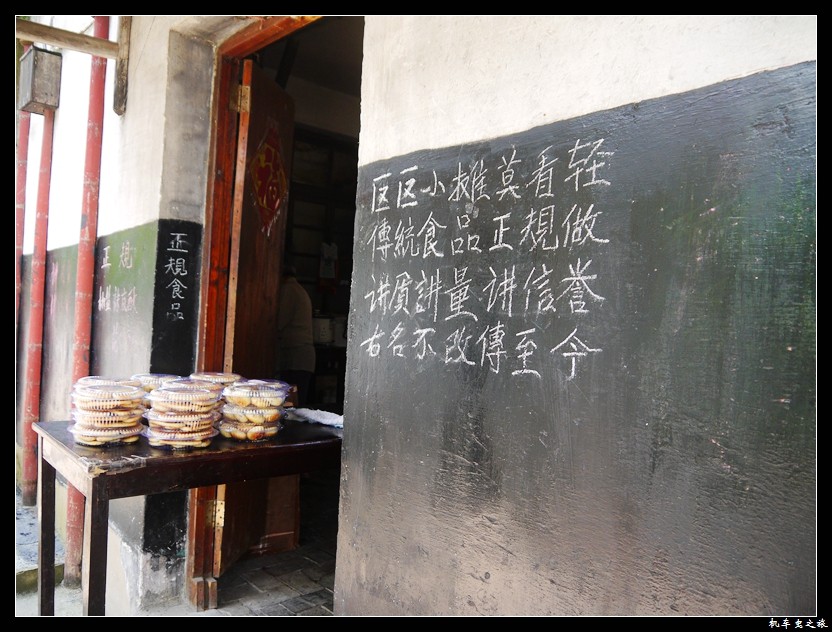 区区小摊莫看轻
傳統食品正規做
讲质讲量讲信誉
古名不改傳至今
正規食品
正規
机车虫之旅